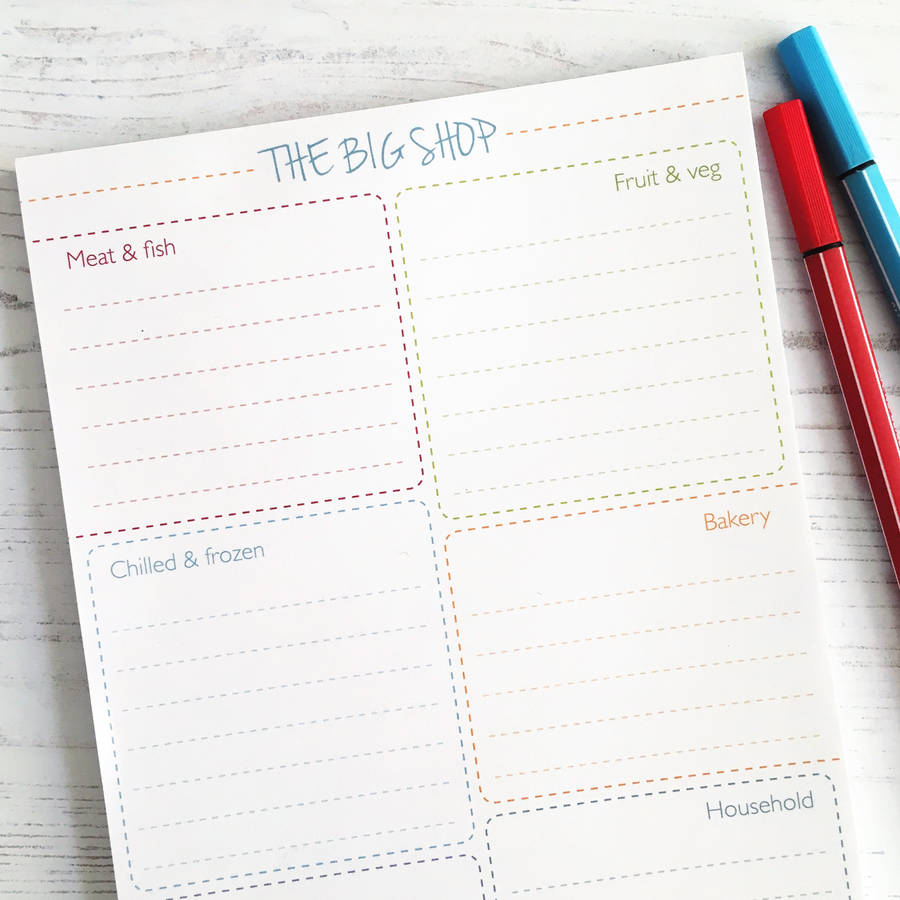 THE BIG SHOP
Meat & fish
Fruit & veg
Chilled & frozen
Bakery
Household